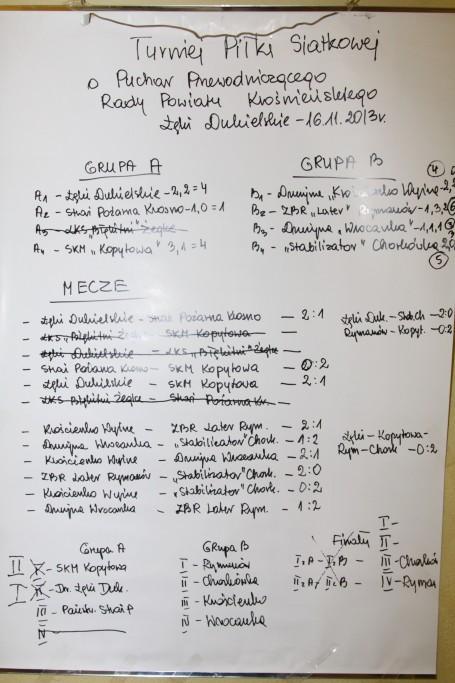 Turniej Piłki Siatkowej
o Puchar Przewodniczącego
Rady Powiatu Krośnieńskiego
Łęki Dukielskie - 16.11.2013r.
GRUPA A
A1 - Łęki Dukielskie - 2, 2 = 4
A2 - Straż Pożarna Krosno - 1, 0 = 1
A3 - LKS "Błękitni" Żeglce
A4 - SKM "Kopytowa" 3, 1 = 4
GRUPA B
B1 - Drużyna "Krościenko Wyżne - 2, 2
B2 - ZBR "Later" Rymanów - 1, 3, 2
B3 - Drużyna "Wrocanka" - 1, 1, 1
B4 - "Stabilizator" Chorkówka 2,
4
5
MECZE
- Łęki Dukielskie - Straż Pożarna Krosno - 2:1
- LKS "Błękitni" Żeglce - SKM Kopytowa -
- Łęki Dukielskie - LKS "Błękitni" Żeglce -
- Straż Pożarna Krosno - SKM Kopytowa - 0:2
- Łęki Dukielskie - SKM Kopytowa - 2:1
- LKS Błękitni Żeglce - Straż Pożarna Kr. -
Łęki Duk. - Stab.ch - 2:0
Rymanów - Kopyt. - 0:2
- Krościenko Wyżne - ZBR Later Rym. - 2:1
- Drużyna Wrocanka - "Stabilizator" Chork. - 1:2
- Krościenko Wyżne - Drużyna Wrocanka - 2:1
- ZBR Later Rymanów - "Stabilizator" Chork. - 2:0
- Krościenko Wyżne - "Stabilizator" Chork. - 0:2
- Drużyna Wrocanka - ZBR Later Rym. - 1:2
Łęki - Kopytowa -
Rym - Chork - 0:2
Grupa A
II - SKM Kopytowa
I - Dr. Łęki Duk.
III - Państw. Straż P
IV
Grupa B
I - Rymanów
II - Chorkówka
III - Krościenko
IV - Wrocanka
Finały
I. A - I. B -
II. A - II. B -
I -
II -
III - Chorków
IV - Ryman